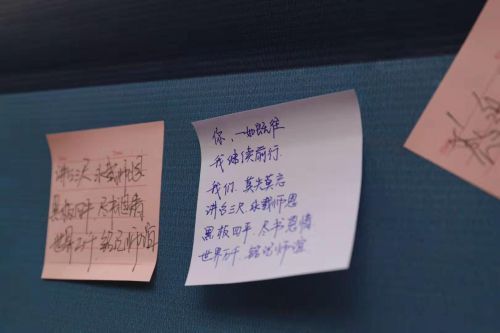 讲台三尺 永载师恩
黑板四平 尽书恩情
世界万千 铭记师谊
你,一如既往
我 继续前行.
我们. 莫失莫忘
讲台三尺.永载师恩
黑板四平.尽书恩情
世界万千.铭记师谊.